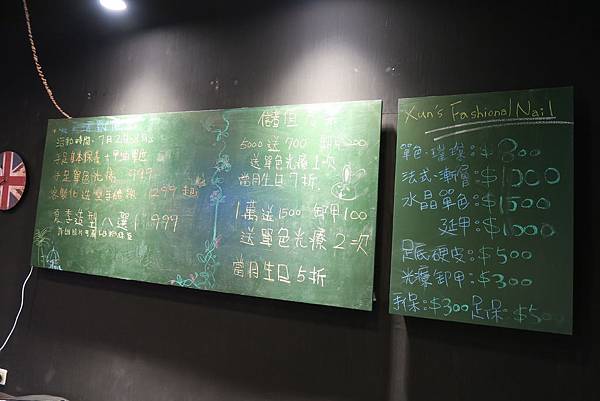 活動時間:7月
手足基本保養+甲油單色
手足單色光療 999
客製化造型手繪 1299起
夏季造型八選1 999
儲值
5000送700
送單色光療1次
當月生日7折
1萬送1500 卸甲100
送單色光療2次
當月生日5折
Xun's Fashional Nail
單色.璀璨:$800
法式.漸層:$1000
水晶單色:$1500
延甲:$1500
足底硬皮:$500
光療卸甲:$300
手保:$300足保:$500